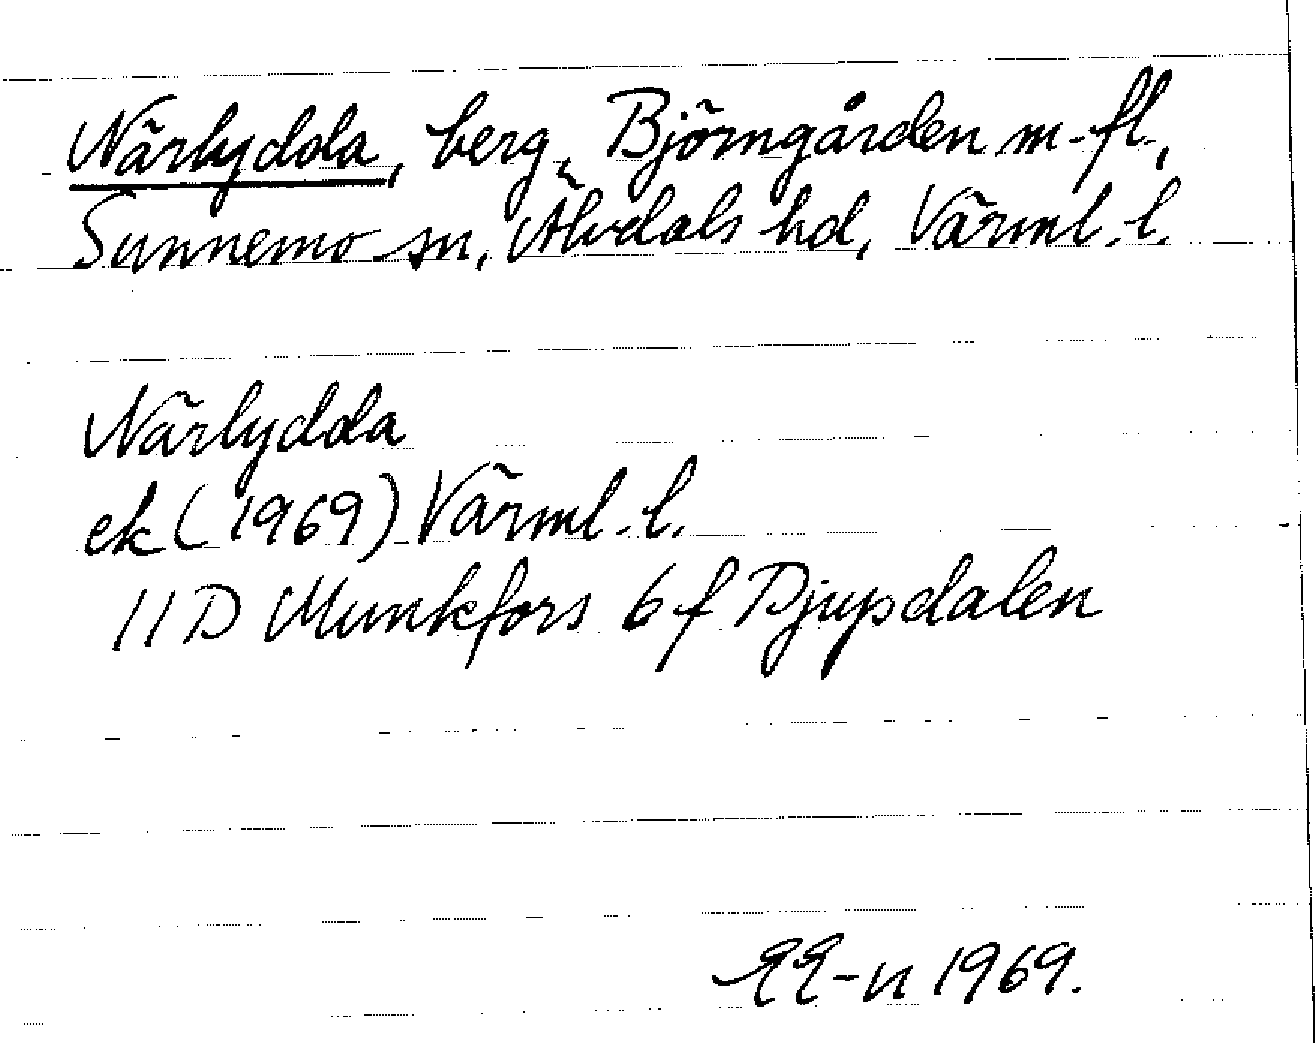 Närlydda, berg, Björngården m. fl.,
Sunnemo sn, Älvdals hd, Värml. l.
Närlydda
ek (1969) Värml. l.
11D Munkfors 6f Djupdalen
EE-n 1969.